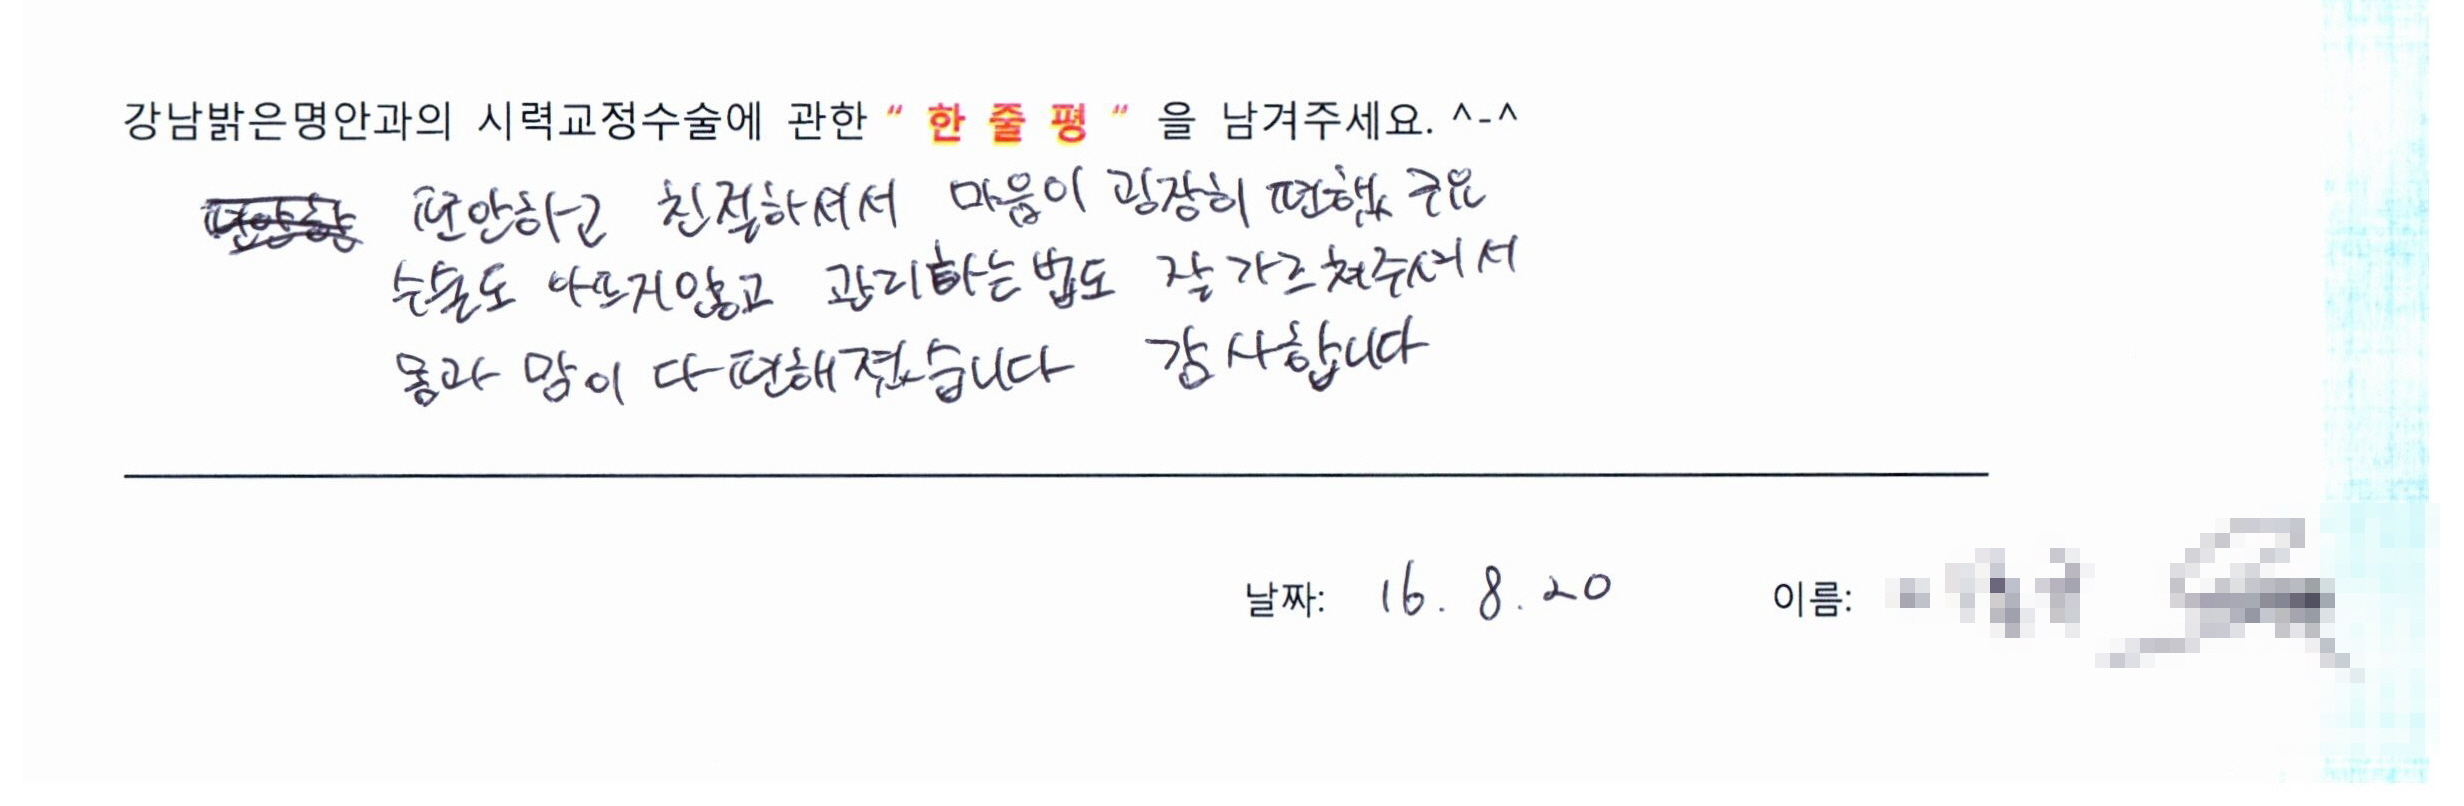 강남밝은명안과의 시력교정수술에 관한 “ 한 줄 평 ” 을 남겨주세요. ^-^
편안하고 친절하셔서 마음이 굉장히 편했구요
수술도 아프지않고 관리하는법도 잘 가르쳐주셔서
몸과 맘이 다 편해졌습니다 감사합니다
날짜: 16. 8. 20 이름: